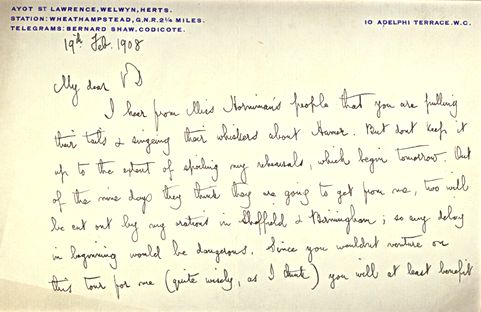 AYOT ST LAWRENCE, WELWYN, HERTS.
STATION: WHEATHAMPSTEAD, G.N.R. 2¼ MILES.
TELEGRAMS: BERNARD SHAW, CODICOTE.
10 ADELPHI TERRACE. W.C.
19th Feb. 1908
My dear
I hear from Miss Horniman's people that you are pulling
their tails & singeing their whiskers about Hamer. But dont keep it
up to the extent of spoiling my rehearsals, which begin tomorrow. Out
of the nine days they think they are going to get from me, two will
be cut out by my orations in Sheffield & Birmingham; so any delay
in beginning would be dangerous. Since you wouldnt venture on
this tour for me (quite wisely, as I think) you will at least benefit